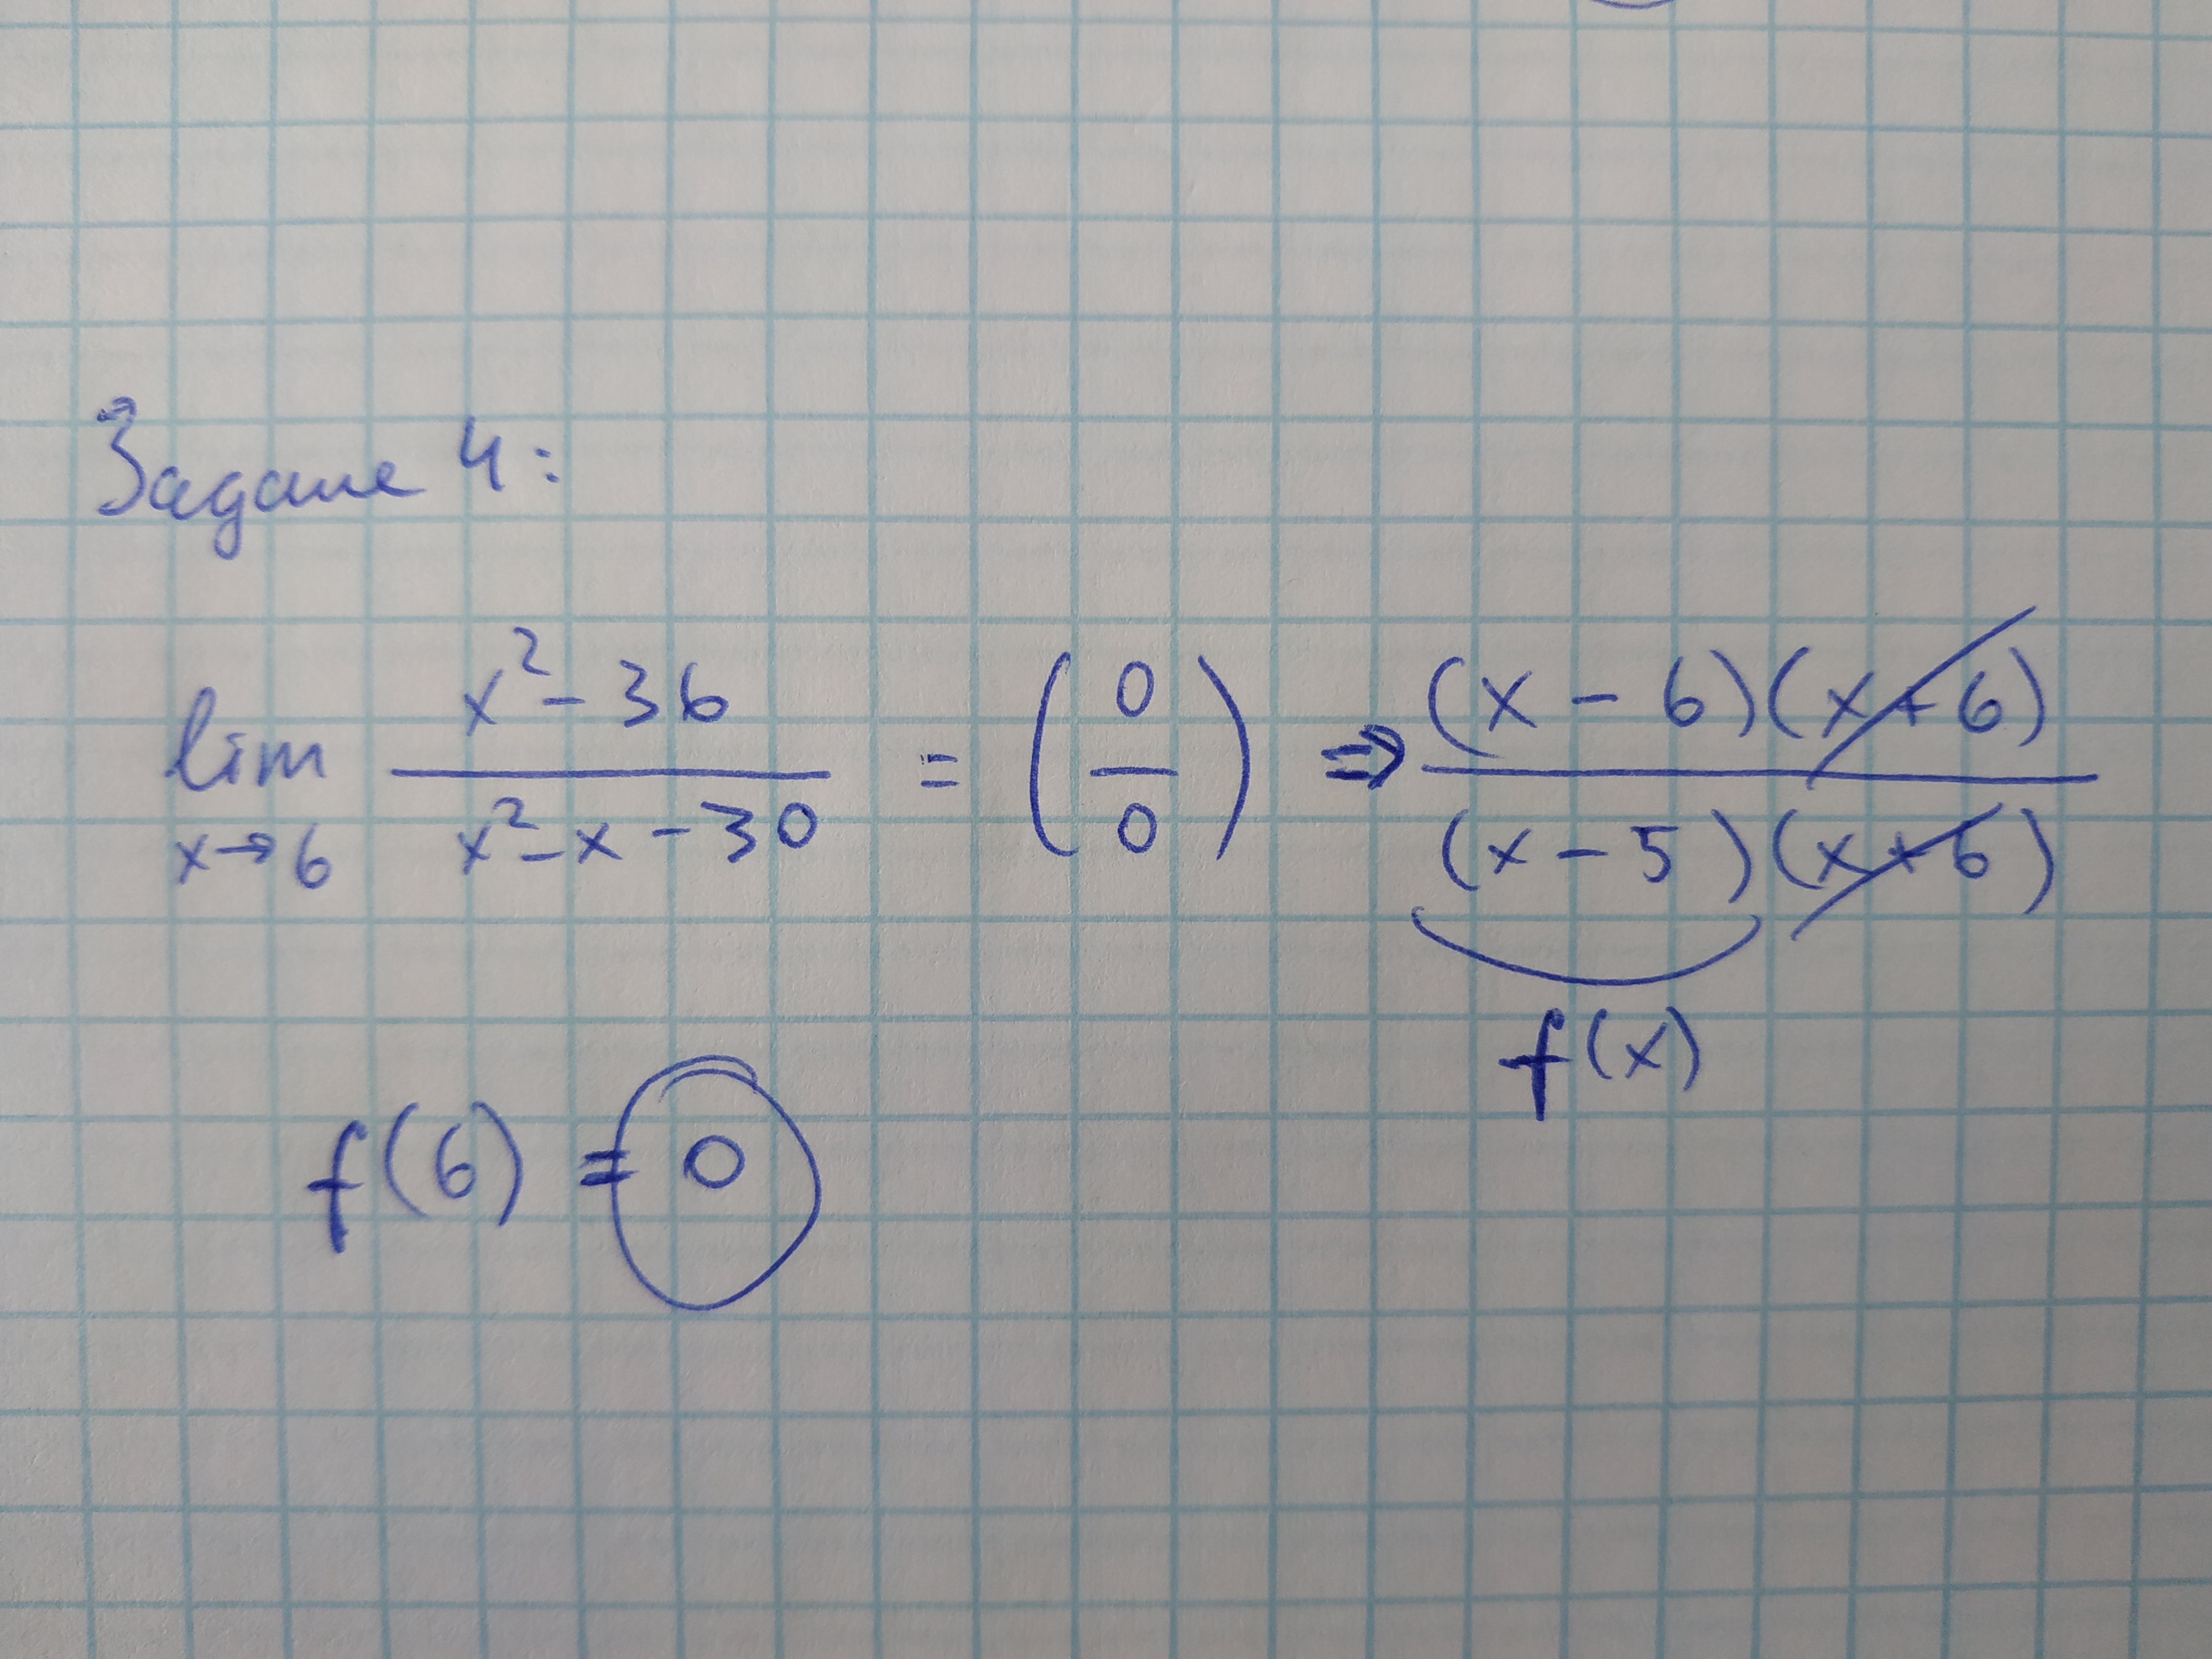 Задание 4:
lim x→6 (x² - 36)/(x² - x - 30) = (0/0) ⇒ ((x - 6)(x + 6))/((x - 5)(x + 6))
f(x)
f(6) = 0